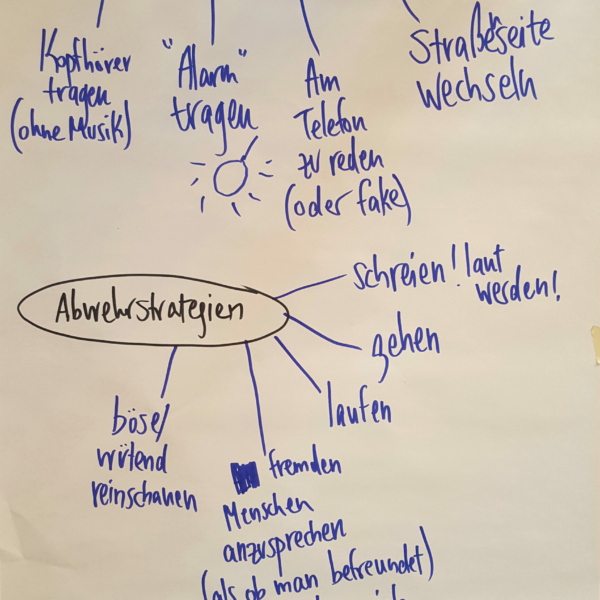 Kopfhörer
tragen
(ohne Musik)
"Alarm"
tragen
Am
Telefon
zu reden
(oder fake)
Straßeseite
wechseln
Abwehrstrategien
schreien! laut
werden!
gehen
laufen
böse/
wütend
reinschauen
fremden
Menschen
anzusprechen
(als ob man befreundet)